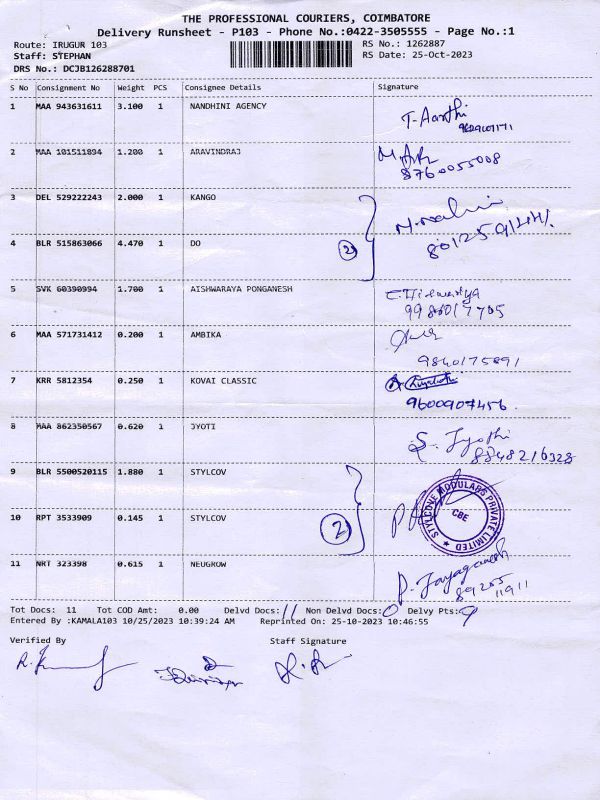 THE PROFESSIONAL COURIERS, COIMBATORE
Delivery Runsheet - P103 - Phone No.:0422-3505555 - Page No.:1
Route: IRUGUR 103 RS No.: 1262887
Staff: STEPHAN RS Date: 25-Oct-2023
DRS No.: DCJB126288701
S No Consignment No Weight PCS Consignee Details Signature
1 MAA 943631611 3.100 1 NANDHINI AGENCY
T-Aarthi
2 MAA 101511894 1.200 1 ARAVINDRAJ
8760055008
3 DEL 529222243 2.000 1 KANGO
2
4 BLR 515863066 4.470 1 DO
5 SVK 60390994 1.700 1 AISHWARAYA PONGANESH
6 MAA 571731412 0.200 1 AMBIKA
9840175891
7 KRR 5812354 0.250 1 KOVAI CLASSIC
9600907456
8 MAA 862350567 0.620 1 JYOTI
S. Jyothi
9 BLR 5500520115 1.880 1 STYLCOV
2
STYLCOVE MODULABS PRIVATE LIMITED
CBE
10 RPT 3533909 0.145 1 STYLCOV
11 NRT 323398 0.615 1 NEUGROW
P. Jayaganesh
89255
11911
Tot Docs: 11 Tot COD Amt: 0.00 Delvd Docs: 11 Non Delvd Docs: 0 Delvy Pts: 9
Entered By :KAMALA103 10/25/2023 10:39:24 AM Reprinted On: 25-10-2023 10:46:55
Verified By Staff Signature